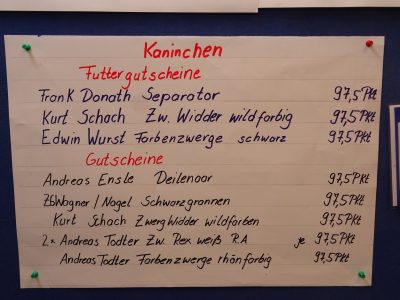 Kaninchen
Futtergutscheine
Frank Donath Separator 97,5Pkt
Kurt Schach Zw. Widder wildfarbig 97,5Pkt
Edwin Wurst Farbenzwerge schwarz 97,5Pkt
Gutscheine
Andreas Ensle Deilenaar 97,5Pkt
ZGWagner/Nagel Schwarzgrannen 97,5Pkt
Kurt Schach ZwergWidder wildfarben 97,5Pkt
2x Andreas Todter Zw. Rex weiß R.A je 97,5Pkt
Andreas Todter Farbenzwerge rhönfarbig 97,5Pkt